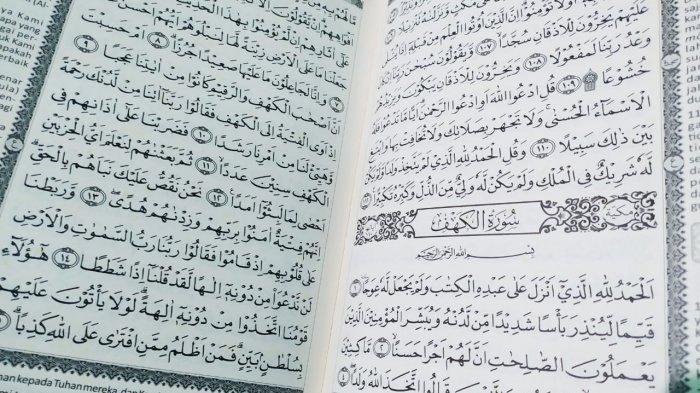 تَنْزِيْلًا
اَوْ لَا تُؤْمِنُوْا اِنَّ الَّذِيْنَ اُوْتُوا الْعِلْمَ مِنْ قَبْلِهٖٓ
عَلَيْهِمْ يَخِرُّوْنَ لِلْاَذْقَانِ سُجَّدًا ١٠٧ وَّيَقُوْلُوْنَ
وَعْدُ رَبِّنَا لَمَفْعُوْلًا ١٠٨ وَيَخِرُّوْنَ لِلْاَذْقَانِ يَبْكُوْنَ وَيَزِيْدُهُمْ
خُشُوْعًا ١٠٩ قُلِ ادْعُوا اللّٰهَ اَوِ ادْعُوا الرَّحْمٰنَ اَيًّا مَّا
الْاَسْمَاۤءُ الْحُسْنٰى وَلَا تَجْهَرْ بِصَلَاتِكَ وَلَا تُخَافِتْ بِهَا وَابْتَغِ
بَيْنَ ذٰلِكَ سَبِيْلًا ١١٠ وَقُلِ الْحَمْدُ لِلّٰهِ الَّذِيْ لَمْ يَتَّخِذْ وَلَدًا
لَّهٗ شَرِيْكٌ فِى الْمُلْكِ وَلَمْ يَكُنْ لَّهٗ وَلِيٌّ مِّنَ الذُّلِّ وَكَبِّرْهُ تَكْبِيْرًا
مكية سُوْرَةُ الْكَهْفِ
بِسْمِ اللّٰهِ الرَّحْمٰنِ الرَّحِيْمِ
اَلْحَمْدُ لِلّٰهِ الَّذِيْٓ اَنْزَلَ عَلٰى عَبْدِهِ الْكِتٰبَ وَلَمْ يَجْعَلْ لَّهٗ عِوَجًا
قَيِّمًا لِّيُنْذِرَ بَأْسًا شَدِيْدًا مِّنْ لَّدُنْهُ وَيُبَشِّرَ الْمُؤْمِنِيْنَ الَّذِيْنَ
يَعْمَلُوْنَ الصّٰلِحٰتِ اَنَّ لَهُمْ اَجْرًا حَسَنًا ٢ مَّاكِثِيْنَ
قَالُوا اتَّخَذَ اللّٰهُ وَلَدًا ٤
اَفْوَاهِهِمْ اِنْ يَّقُوْلُوْنَ اِلَّا
عَلٰٓى اٰثَارِهِمْ اِنْ لَّمْ يُؤْمِنُوْا بِهٰذَا الْحَدِيْثِ
جَعَلْنَا مَا عَلَى الْاَرْضِ زِيْنَةً لَّهَا لِنَبْلُوَهُمْ اَيُّهُمْ اَحْسَنُ
٧ وَاِنَّا لَجَاعِلُوْنَ مَا عَلَيْهَا صَعِيْدًا جُرُزًا ٨ اَمْ حَسِبْتَ
اَنَّ اَصْحٰبَ الْكَهْفِ وَالرَّقِيْمِ كَانُوْا مِنْ اٰيٰتِنَا عَجَبًا ٩
اِذْ اَوَى الْفِتْيَةُ اِلَى الْكَهْفِ فَقَالُوْا رَبَّنَآ اٰتِنَا مِنْ لَّدُنْكَ رَحْمَةً
وَّهَيِّئْ لَنَا مِنْ اَمْرِنَا رَشَدًا ١٠ فَضَرَبْنَا عَلٰٓى اٰذَانِهِمْ فِى
الْكَهْفِ سِنِيْنَ عَدَدًا ١١ ثُمَّ بَعَثْنٰهُمْ لِنَعْلَمَ اَيُّ الْحِزْبَيْنِ
اَحْصٰى لِمَا لَبِثُوْٓا اَمَدًا ١٢ نَحْنُ نَقُصُّ عَلَيْكَ نَبَاَهُمْ بِالْحَقِّ
اِنَّهُمْ فِتْيَةٌ اٰمَنُوْا بِرَبِّهِمْ وَزِدْنٰهُمْ هُدًى ١٣ وَّرَبَطْنَا
عَلٰى قُلُوْبِهِمْ اِذْ قَامُوْا فَقَالُوْا رَبُّنَا رَبُّ السَّمٰوٰتِ وَالْاَرْضِ
لَنْ نَّدْعُوَا۟ مِنْ دُوْنِهٖٓ اِلٰهًا لَّقَدْ قُلْنَآ اِذًا شَطَطًا ١٤ هٰٓؤُلَاۤءِ
قَوْمُنَا اتَّخَذُوْا مِنْ دُوْنِهٖٓ اٰلِهَةً لَوْلَا يَأْتُوْنَ عَلَيْهِمْ
بِسُلْطٰنٍۢ بَيِّنٍ فَمَنْ اَظْلَمُ مِمَّنِ افْتَرٰى عَلَى اللّٰهِ كَذِبًا
kepada Tuhan mereka, dan